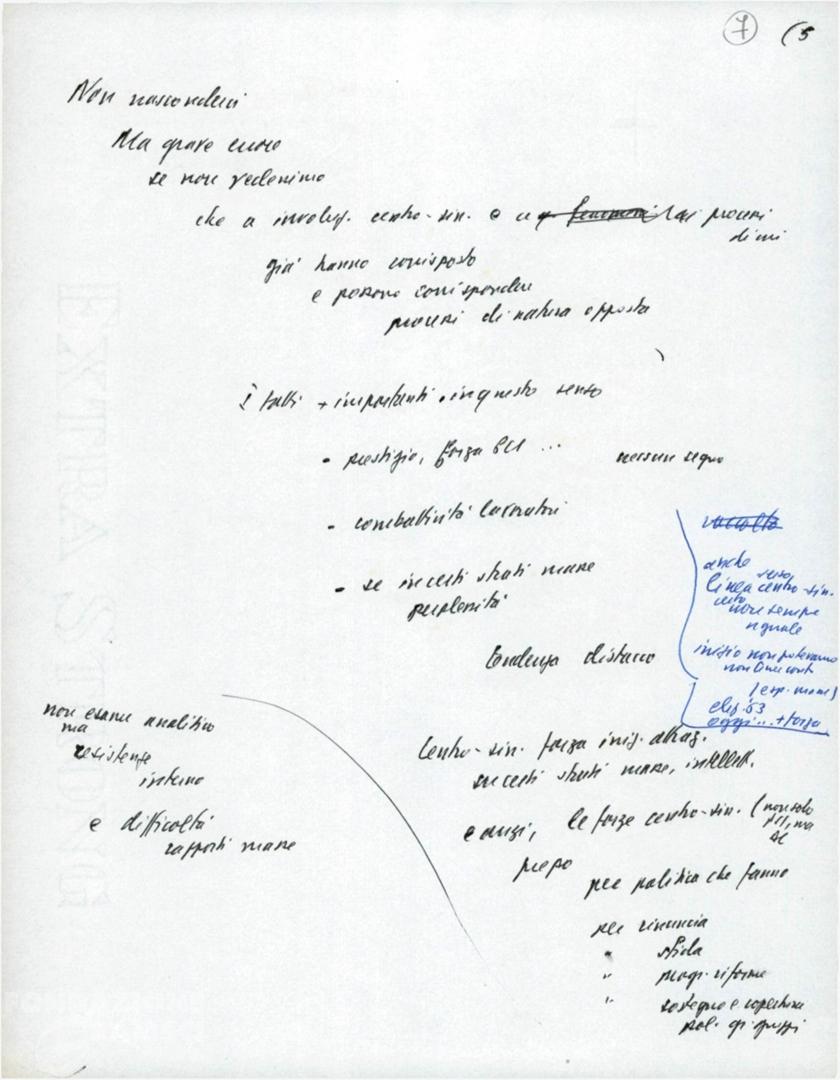 7 (5
Non nasconderci
Ma grave errore
se non vedessimo
che a involuz. centro-sin. e a processi
di crisi
già hanno corrisposto
e possono corrispondere
processi di natura opposta
I fatti + importanti in questo senso
- prestigio, forza PCI ... nessun segno
- combattività lavoratori
- se in certi strati masse
perplessità
tendenza distacco
anche verso
linea centro-sin.
certo
non sempre
uguale
inizio non potevamo
non tener conto
(esp. masse)
elez. 63
oggi... + forza
non esame analitico
ma
resistenze
interne
e difficoltà
rapporti masse
Centro-sin. forza iniz. attraz.
su certi strati masse, intellett.
e anzi, le forze centro-sin. (non solo
PSI, ma
DC
per politica che fanno
per rinuncia
" sfida
" progr. riforme
" sostegno e copertura
pol. gr. gruppi
EXTRA STRONG
FONDAZIONE